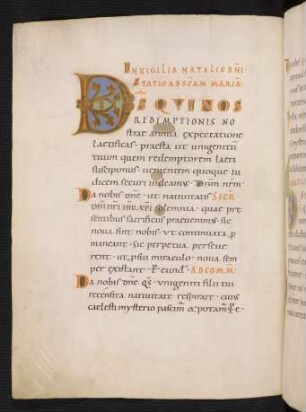 IN VIGILIA NATALIS DNI
STATIO AD SCAM MARIA
DS QVI NOS
REDEMPTIONIS NO
strae annua expectatione
laetificas · praesta ut unigenitu
tuum quem redemptorem laeti
suscipimus · uenientem quoque iu
dicem securi uideamus · Dnm nrm
Da nobis dne · ut natiuitatis SECR
dni nri ihu xpi sollemnia · quae prę
sentibus sacrificiis praeuenimus · sic
noua sint nobis · ut continuata p
maneant · sic perpetua perseue
rent · ut pro sui miraculo · noua sem
per existant · P eund · AD COMM
Da nobis dne qs · unigeniti filii tui
recensita natiuitate respirare · cuius
caelesti mysterio pascim & potam · P ·